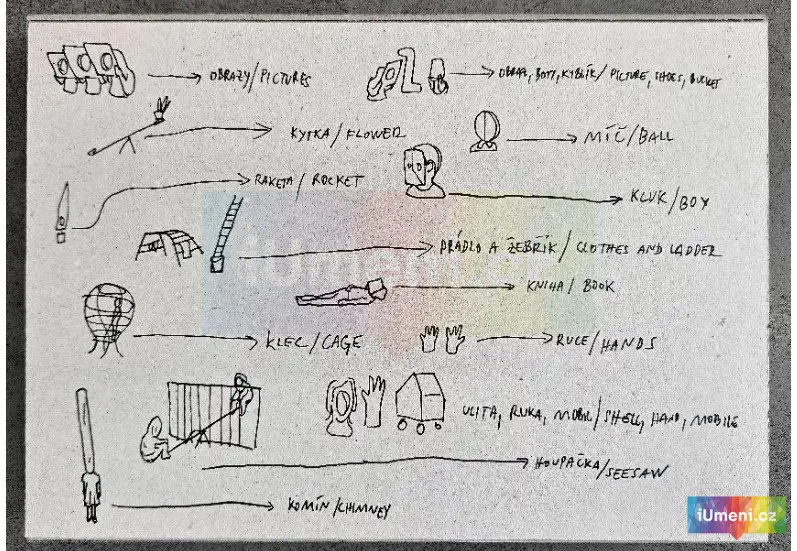 OBRAZY/PICTURES
OBRAZ, BOTY, KYBLÍK/ PICTURE, SHOES, BUCKET
KYTKA/FLOWER
MÍČ/BALL
RAKETA/ROCKET
KLUK/BOY
PRÁDLO A ŽEBŘÍK/ CLOTHES AND LADDER
iUmeni.cz
KNIHA/ BOOK
KLEC/CAGE
RUCE/HANDS
ULITA, RUKA, MOBIL/SHELL, HAND, MOBILE
HOUPAČKA/SEESAW
KOMÍN/CHIMNEY
iUmeni.cz